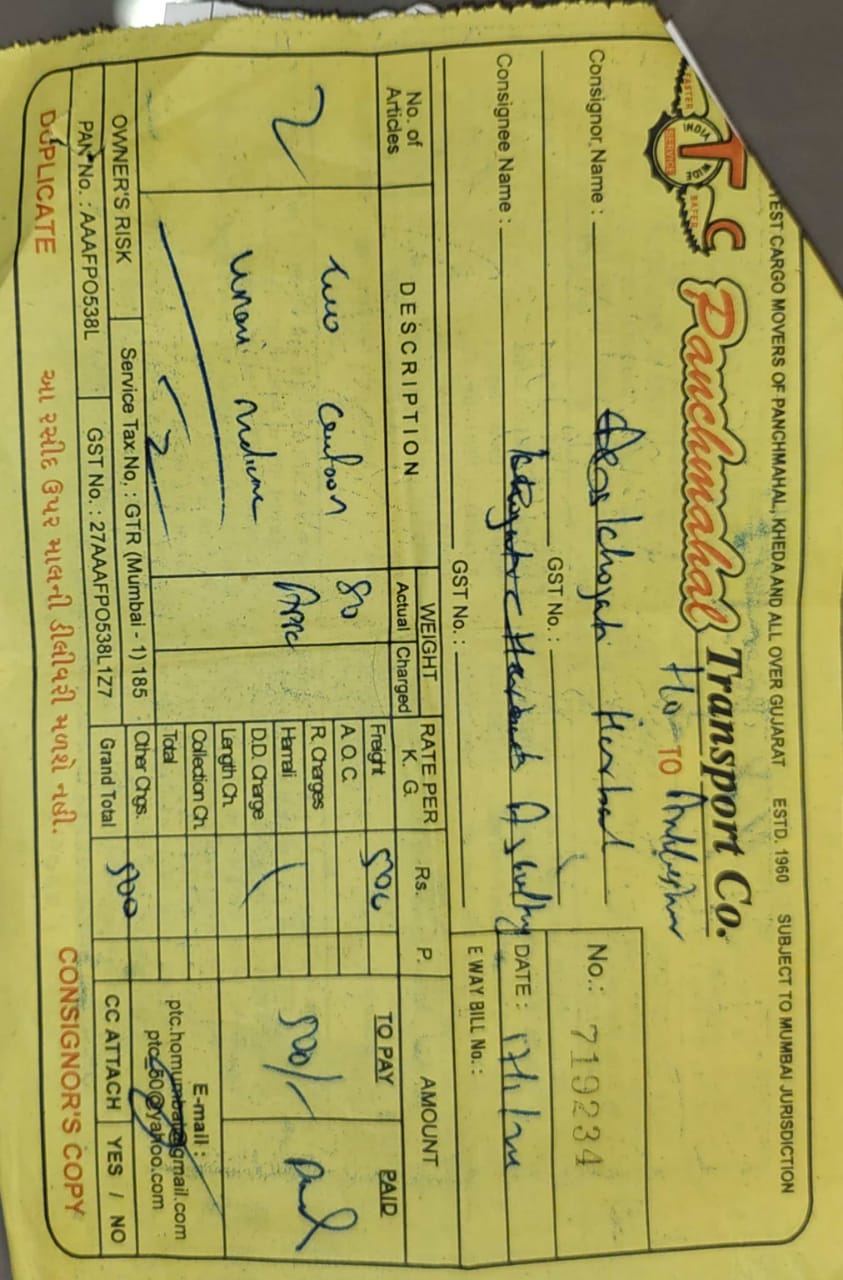 TEST CARGO MOVERS OF PANCHMAHAL, KHEDA AND ALL OVER GUJARAT ESTD. 1960 SUBJECT TO MUMBAI JURISDICTION
T C
FASTER SAFER
INDIA WIDE
SERVICE
Panchmahal Transport Co.
Ho TO
No.: 719234
Consignor Name : Herbal
GST No. :
Consignee Name :
DATE :
GST No. :
E WAY BILL No. :
No. of Articles DESCRIPTION WEIGHT RATE PER K. G. Rs. P. AMOUNT
Actual Charged TO PAY PAID
2 two 80 Freight 500 500/- Paid
unani A.O.C.
R. Charges
Hamali
D.D. Charge
Length Ch.
Collection Ch.
Total
2 Other Chgs.
E-mail :
ptc.homumbai@gmail.com
ptc_60@yahoo.com
OWNER'S RISK Service Tax No. : GTR (Mumbai - 1) 185
PAN No. : AAAFPO538L GST No. : 27AAAFPO538L1Z7 Grand Total 500 CC ATTACH YES / NO
DUPLICATE આ રસીદ ઉપર માલની ડીલીવરી મળશે નહી. CONSIGNOR'S COPY